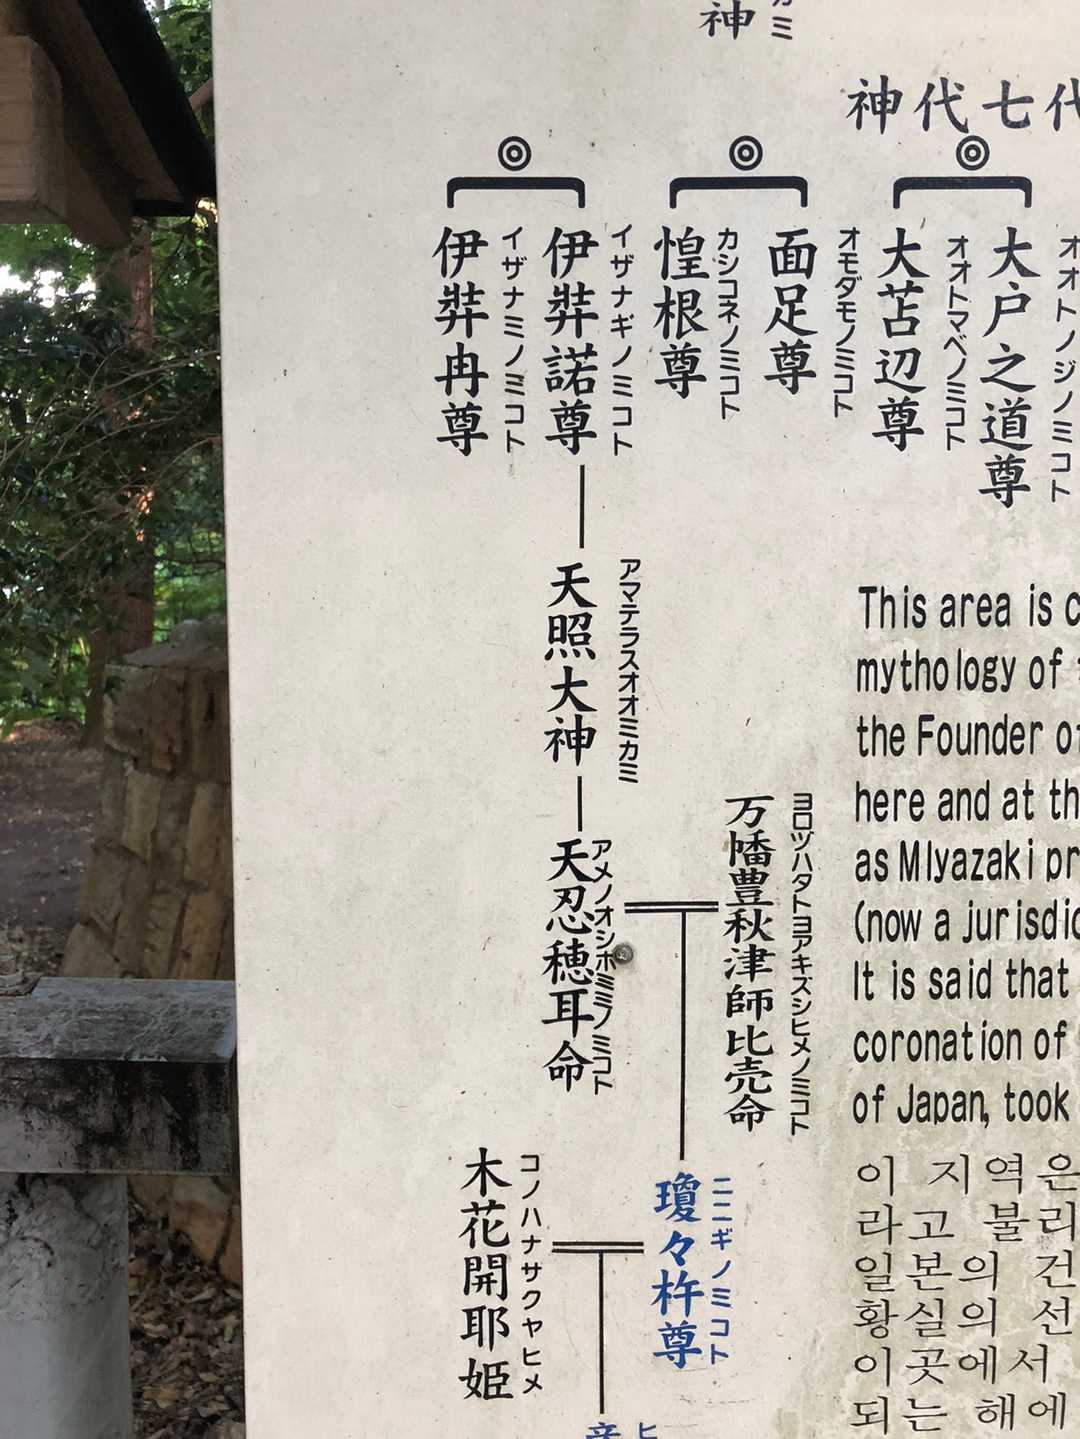 神
カミ
神代七代
大戸之道尊
オオトノジノミコト
大苫辺尊
オオトマベノミコト
面足尊
オモダモノミコト
惶根尊
カシコネノミコト
伊弉諾尊
イザナギノミコト
伊弉冉尊
イザナミノミコト
天照大神
アマテラスオオミカミ
万幡豊秋津師比売命
ヨロヅハタトヨアキズシヒメノミコト
天忍穂耳命
アメノオシホミミノミコト
瓊々杵尊
ニニギノミコト
木花開耶姫
コノハナサクヤヒメ
ヒ
This area is c
mythology of
the Founder of
here and at th
as MIyazaki pr
(now a jurisdic
It is said that
coronation of
of Japan, took
이 지역은
라고 불리
일본의 건
황실의 선
이곳에서
되는 해에